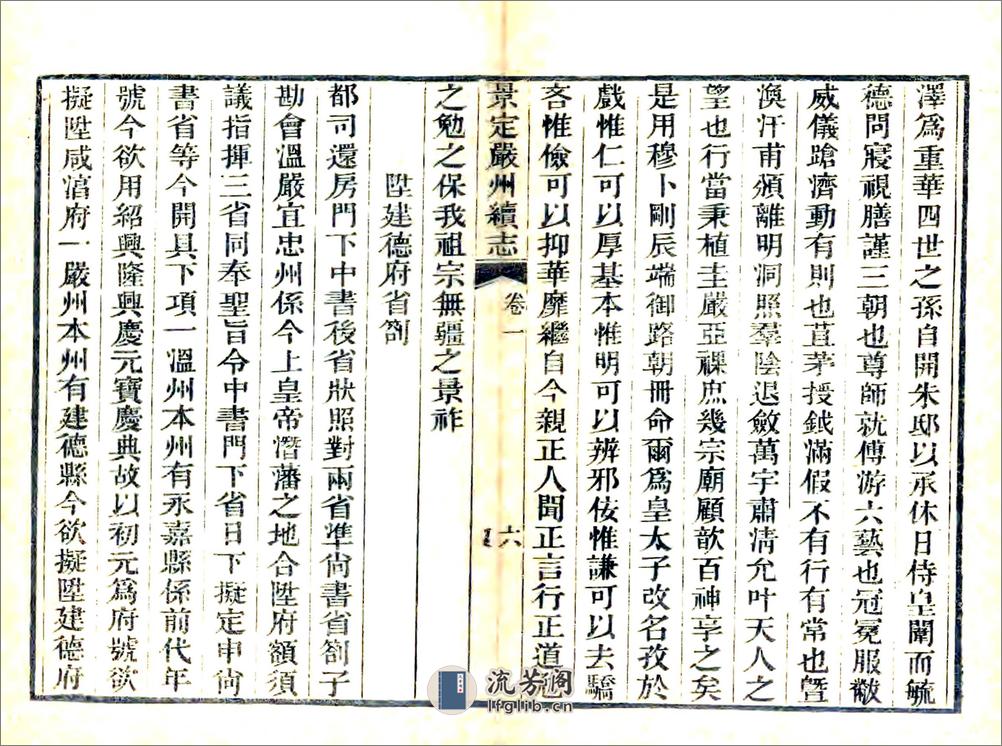 澤爲重華四世之孫自開朱邸以承休日侍皇闈而毓
德問寢視膳謹三朝也尊師就傅游六藝也冠冕服黻
威儀蹌濟動有則也苴茅授鉞滿假不有行有常也曁
渙汗甫頒離明洞照羣陰退斂萬宇肅淸允叶天人之
望也行當秉植圭嚴亞祼庶幾宗廟顧歆百神享之矣
是用穆卜剛辰端御路朝冊命爾爲皇太子改名孜於
戲惟仁可以厚基本惟明可以辨邪佞惟謙可以去驕
吝惟儉可以抑華靡繼自今親正人聞正言行正道
景定嚴州續志
卷一
六
之勉之保我祖宗無疆之景祚
陞建德府省劄
都司還房門下中書後省狀照對兩省準尙書省劄子
勘會溫嚴宜忠州係今上皇帝潛藩之地合陞府額須
議指揮三省同奉聖旨令中書門下省日下擬定申尙
書省等今開具下項一溫州本州有永嘉縣係前代年
號今欲用紹興隆興慶元寶慶典故以初元爲府號欲
擬陞咸淳府一嚴州本州有建德縣今欲擬陞建德府
流芳阁
lfglib.cn